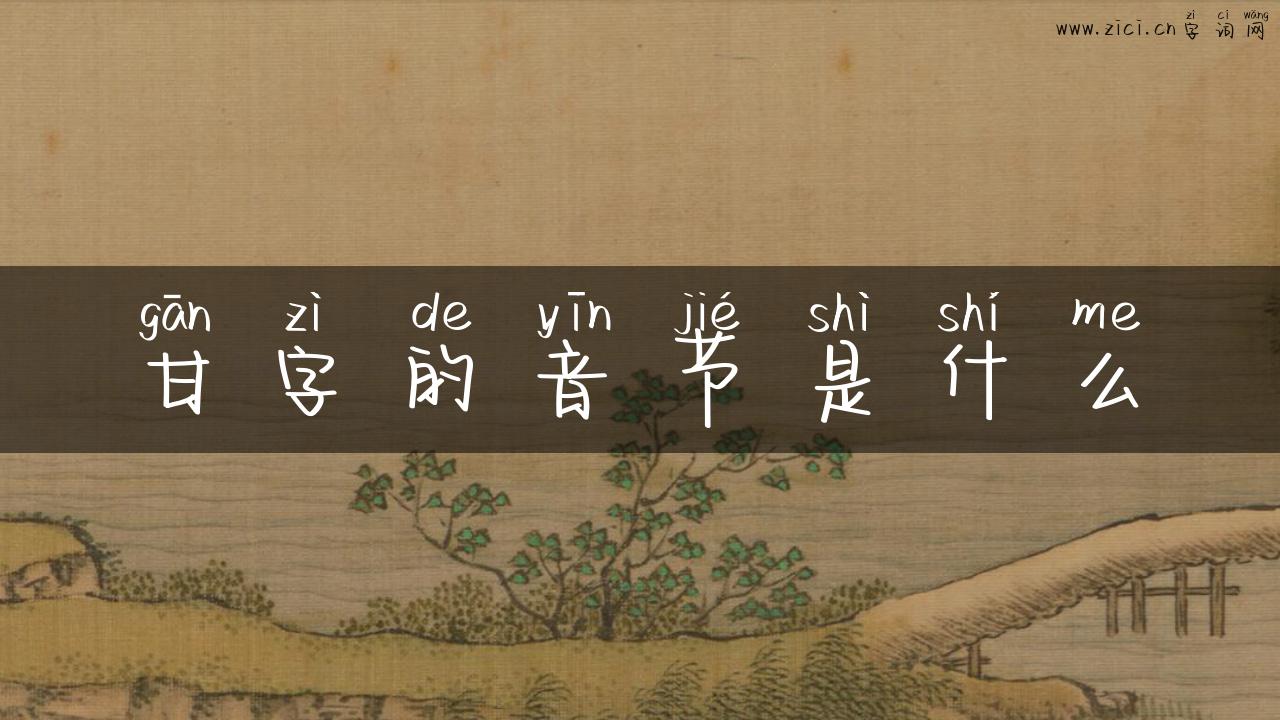 zì cí wǎng
www.zici.cn 字词网
gān zì de yīn jié shì shí me
甘字的音节是什么